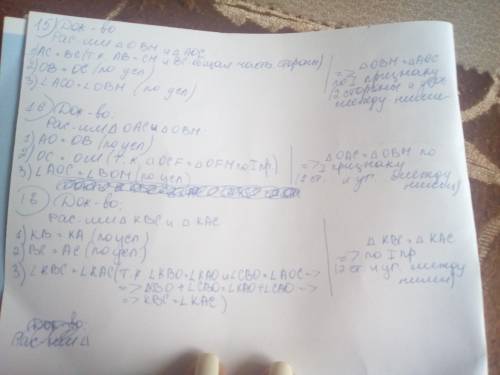 15) Док-во
Рас-мим △ OBM и △ AOC
1) AC = BC (т.к. AB = CM и BC общая часть стороны)
2) OB = OC (по усл)
3) ∠ACO = ∠OBM (по усл)
=> △OBM = △AOC
по I признаку
(2 стороны и угол
между ними)
16) Док-во:
Рас-мим △ OAC и △ OBM.
1) AO = OB (по усл)
2) OC = OM (т.к. △OCF = △OFM по I пр)
3) ∠AOC = ∠BOM (по усл)
△OAC = △OBM по
=> I признаку
(2 ст. и уг. между
ними)
18) Док-во:
Рас-мим △ KBC и △ KAC
1) KB = KA (по усл)
2) BC = AC (по усл)
3) ∠KBC = ∠KAC (т.к. ∠KBO = ∠KAO и ∠CBO = ∠AOC =>
=> ∠KBO + ∠CBO = ∠KAO + ∠CAO =>
=> KBC = ∠KAC)
△ KBC = △ KAC
=> по I пр
(2 ст. и уг. между
ними)
Док-во:
Рас-мим △